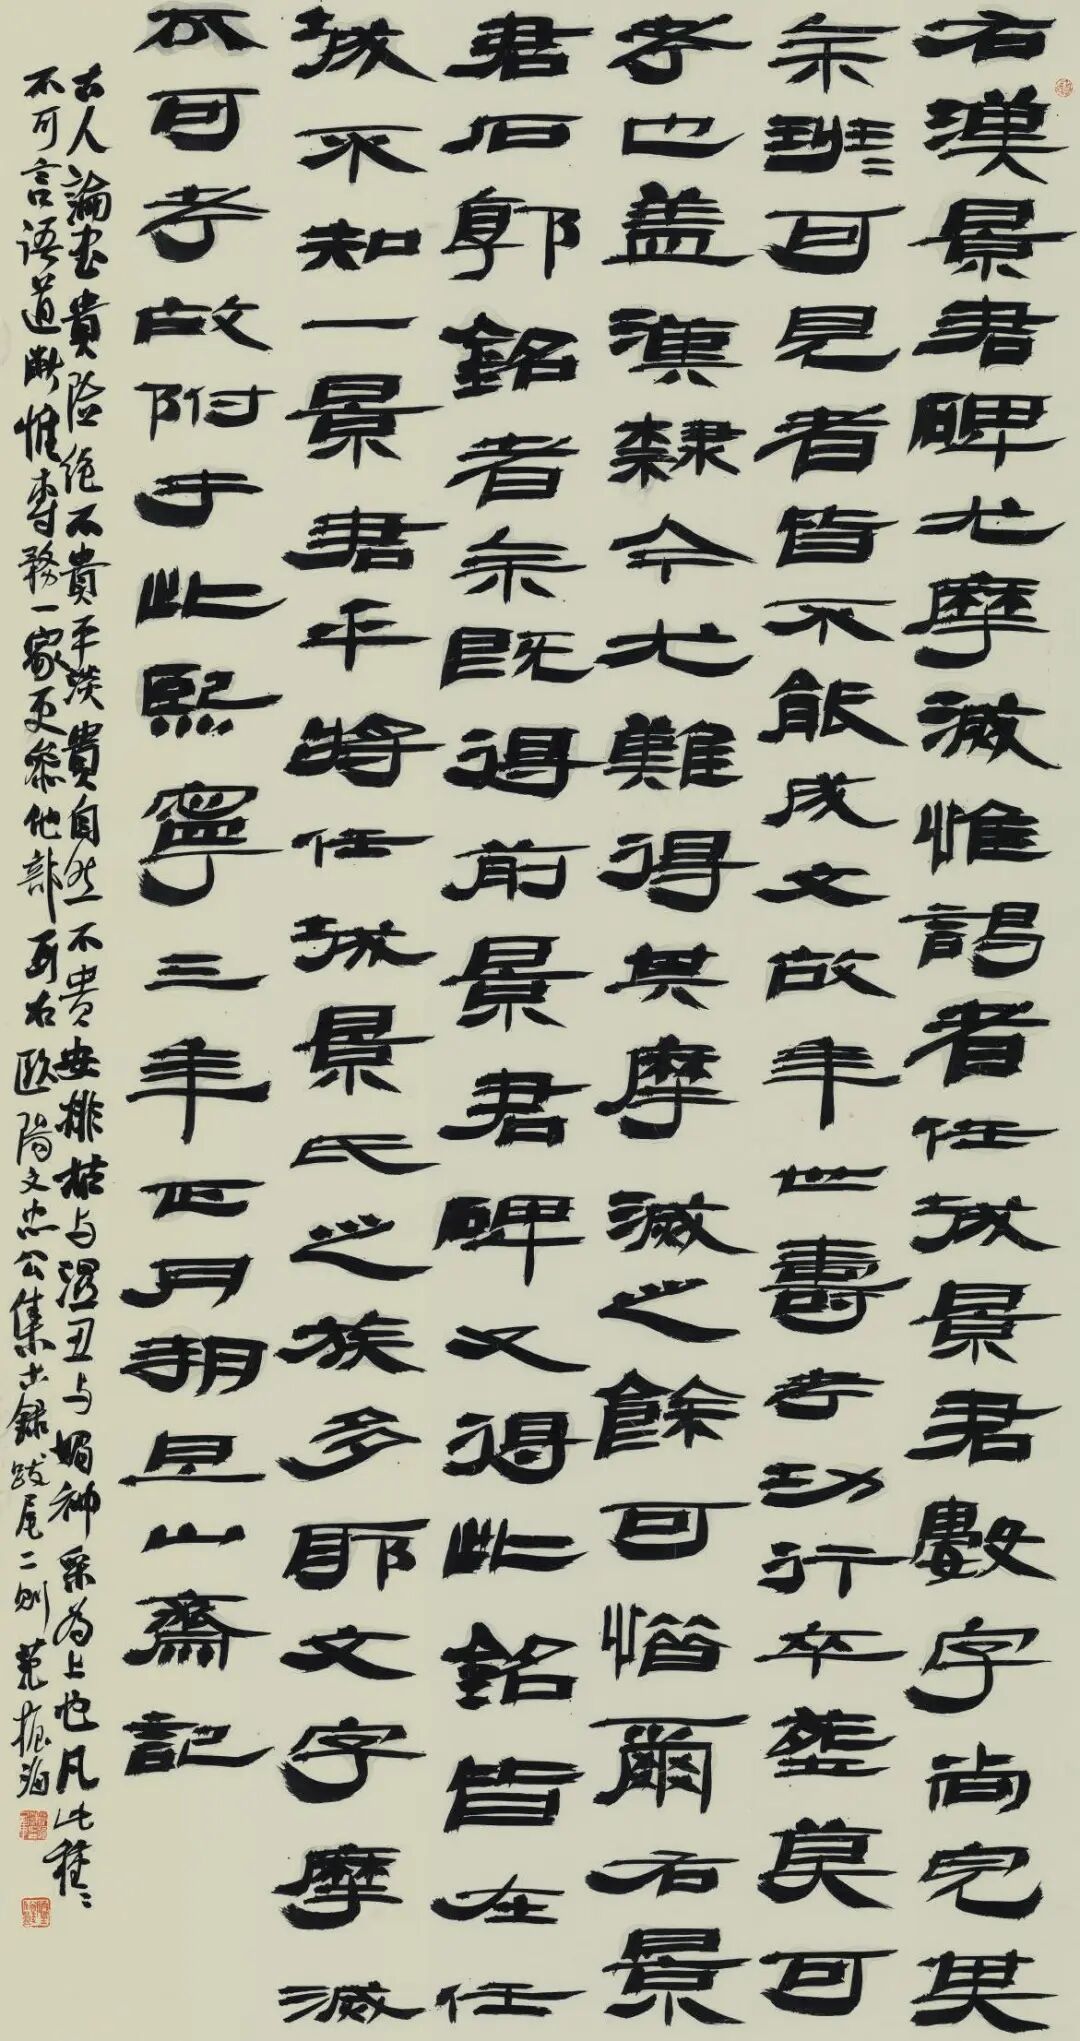 右漢景君碑尤摩滅惟謁者任城景君數字尚完其
余班〻可見者皆不能成文故年世壽考功行卒葬莫可
考也盖漢隸今尤難得其摩滅之餘可惜爾右景
君石郭銘者余既得前景君碑又得此銘皆在任
城不知一景君乎將任城景氏之族多耶文字摩滅
不可考故附于此熙寧三年正月朔旦山齋記
古人論书貴险绝不貴平淡貴自然不貴安排拙与涩丑与媚神采为上也凡此種〻
不可言语道断惟専務一家更参他部右欧陽文忠公集古録跋尾二则范振海